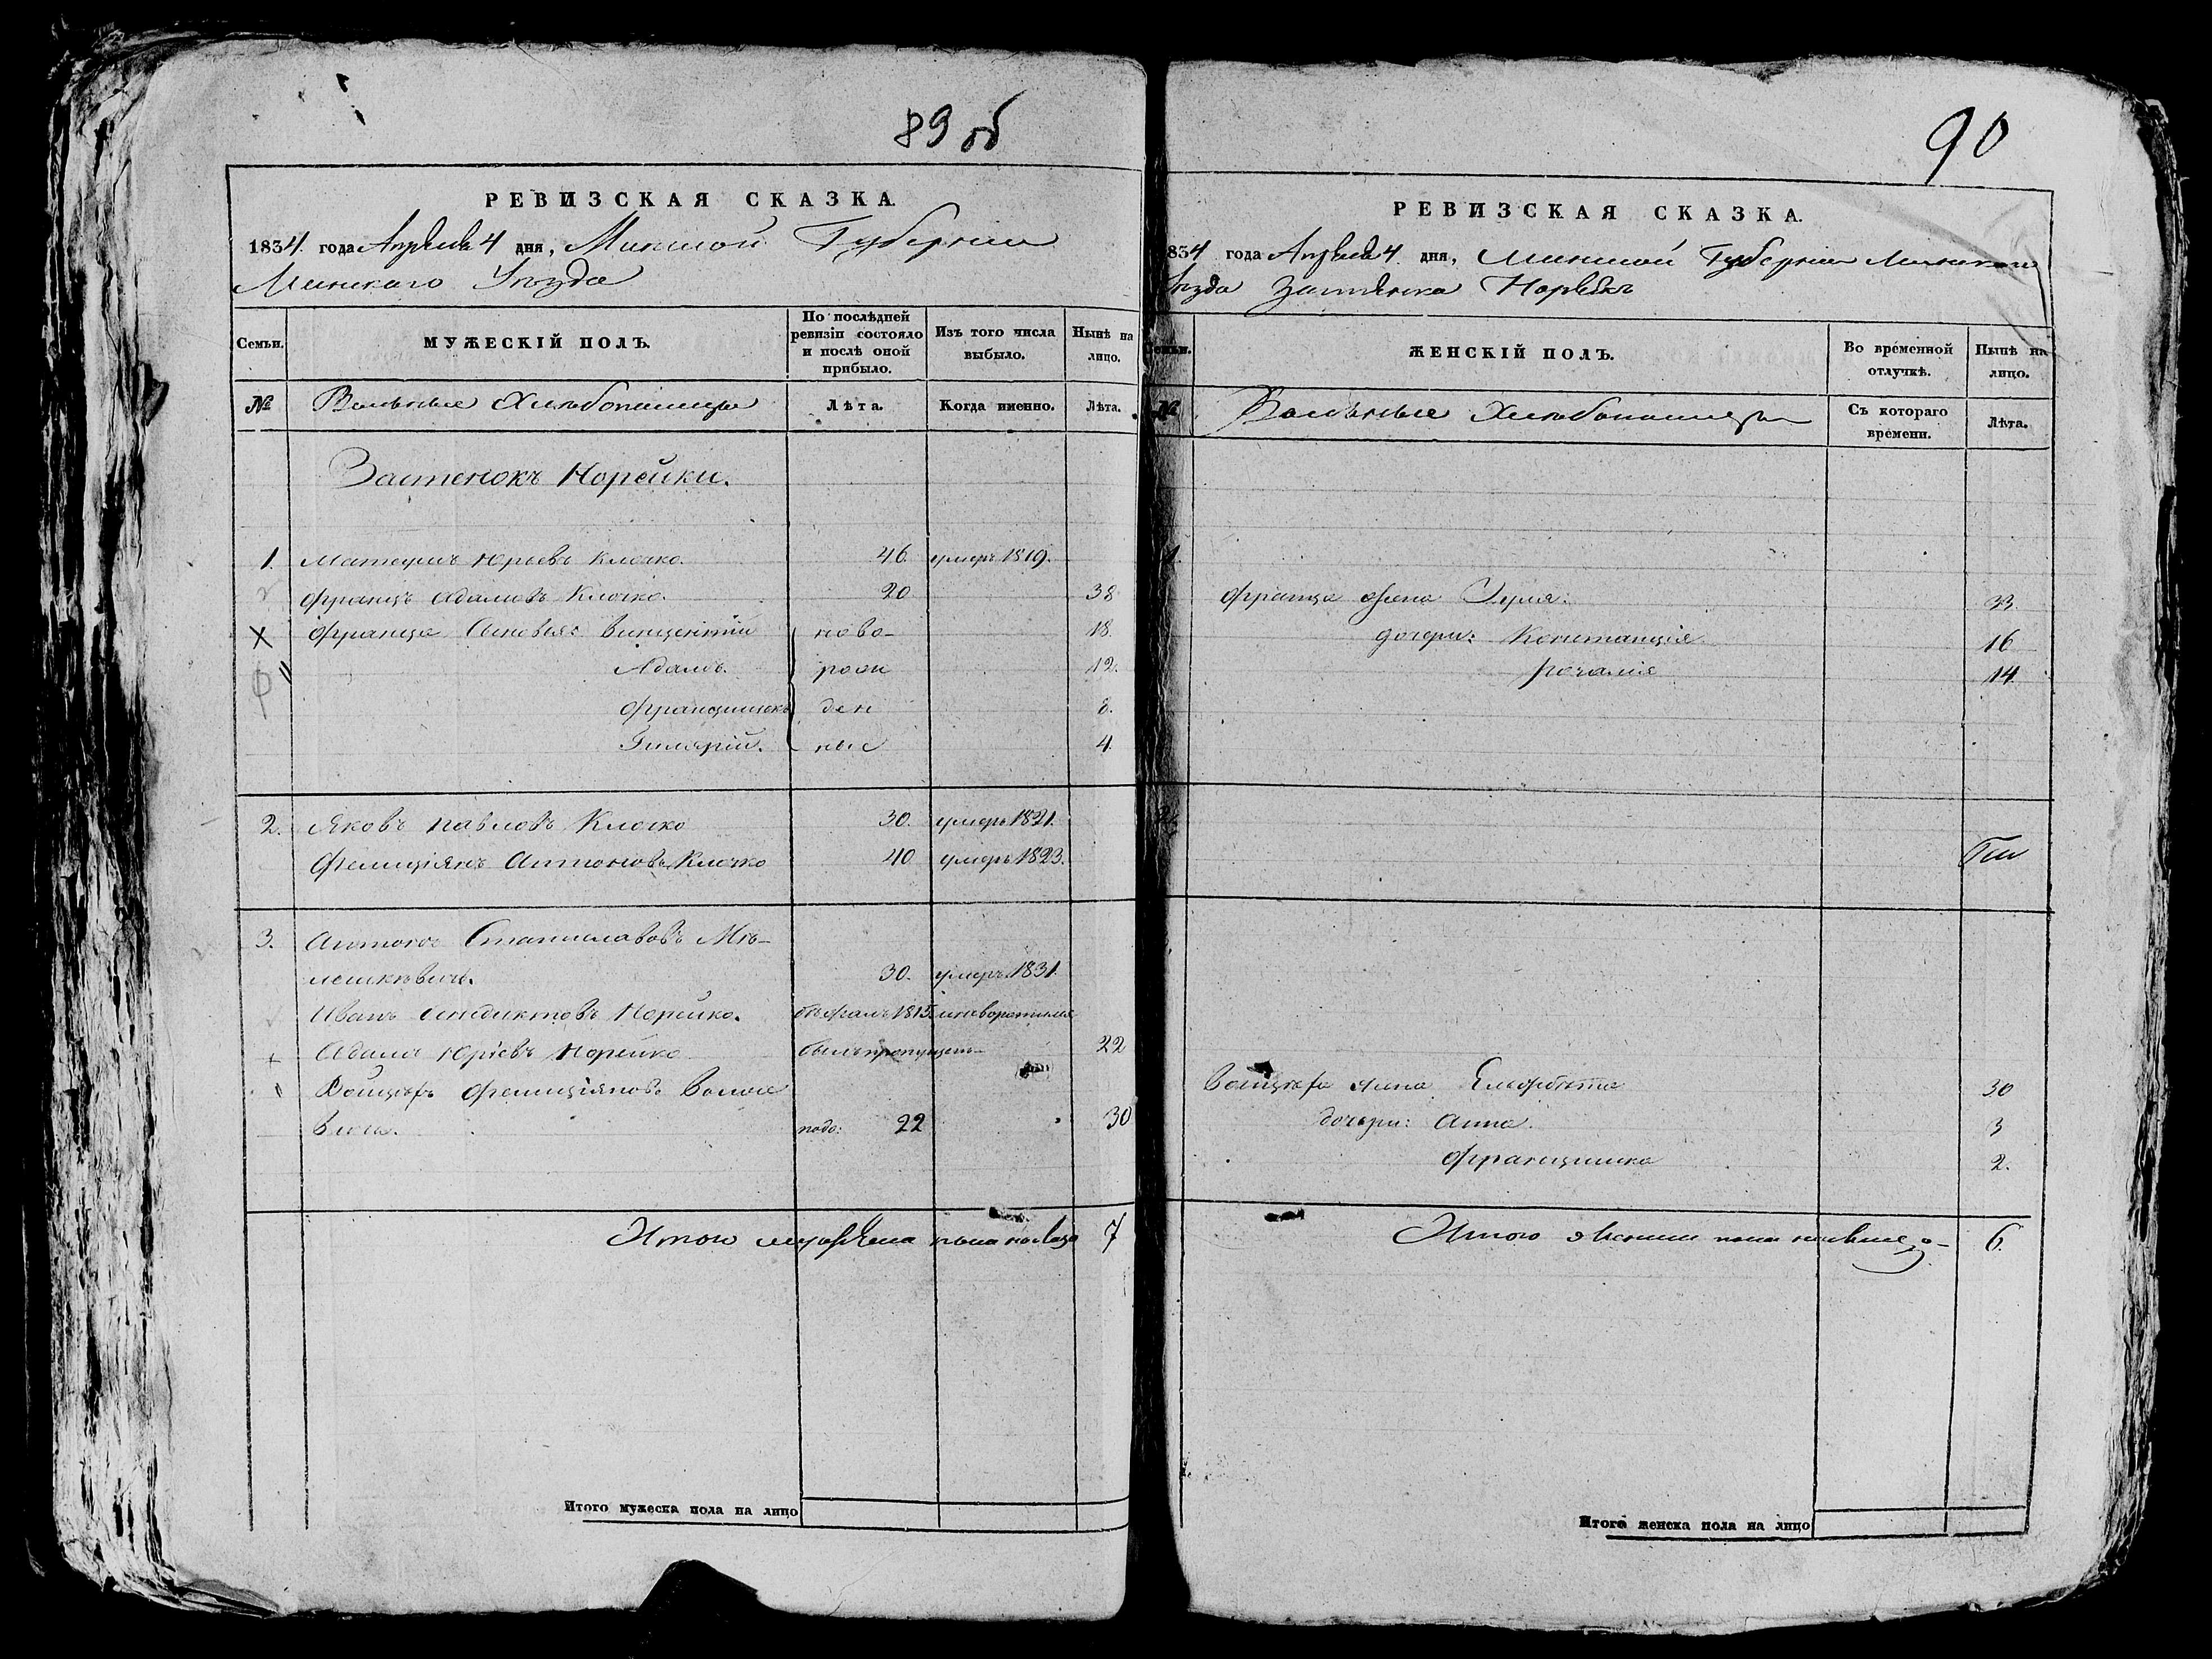 89 об
РЕВИЗСКАЯ СКАЗКА.
1834. года Апреля 4 дня, Минской Губернии
Минскаго Уезда
Семьи.
МУЖЕСКІЙ ПОЛЪ.
По послѣдней ревизіи состояло и послѣ оной прибыло.
Изъ того числа выбыло.
Нынѣ на лицо.
№
Вольные Хлебопашцы
Лѣта.
Когда именно.
Лѣта.
Застенокъ Норейки.
1. Матеушъ Юрьевъ Клочко. 46. умеръ 1819.
Францъ Адамовъ Клочко. 20 38
Франца Сыновья: Винцентій ново- 18.
Адамъ. рож 12.
Францишекъ ден 8.
ные 4.
2. Яковъ Павловъ Клочко 30. умеръ 1821.
Фелиціянъ Антоновъ Клочко 40 умеръ 1823.
3. Антонъ Станиславовъ
30. умеръ 1831.
Иванъ Бенедиктовъ Норейко. бежалъ 1815.
Адамъ Юрьевъ Норейко былъ пропущенъ 22
Войцехъ Фелиціяновъ
22 30
Итого мужеска пола на лицо 7
Итого мужеска пола на лицо
90
РЕВИЗСКАЯ СКАЗКА.
834 года Апреля 4 дня, Минской Губернии Минскаго
Уезда Застенка Нореекъ
Семьи.
ЖЕНСКІЙ ПОЛЪ.
Во временной отлучкѣ.
Нынѣ на лицо.
№
Вольные Хлебопашцы
Съ котораго времени.
Лѣта.
1.
Франца жена 33.
дочери: Констанція 16
Розалія 14.
2.
3
Войцеха жена Елжбета 30
дочери: Анна. 3
Францишка 2.
Итого женска пола на лицо 6.
Итого женска пола на лицо